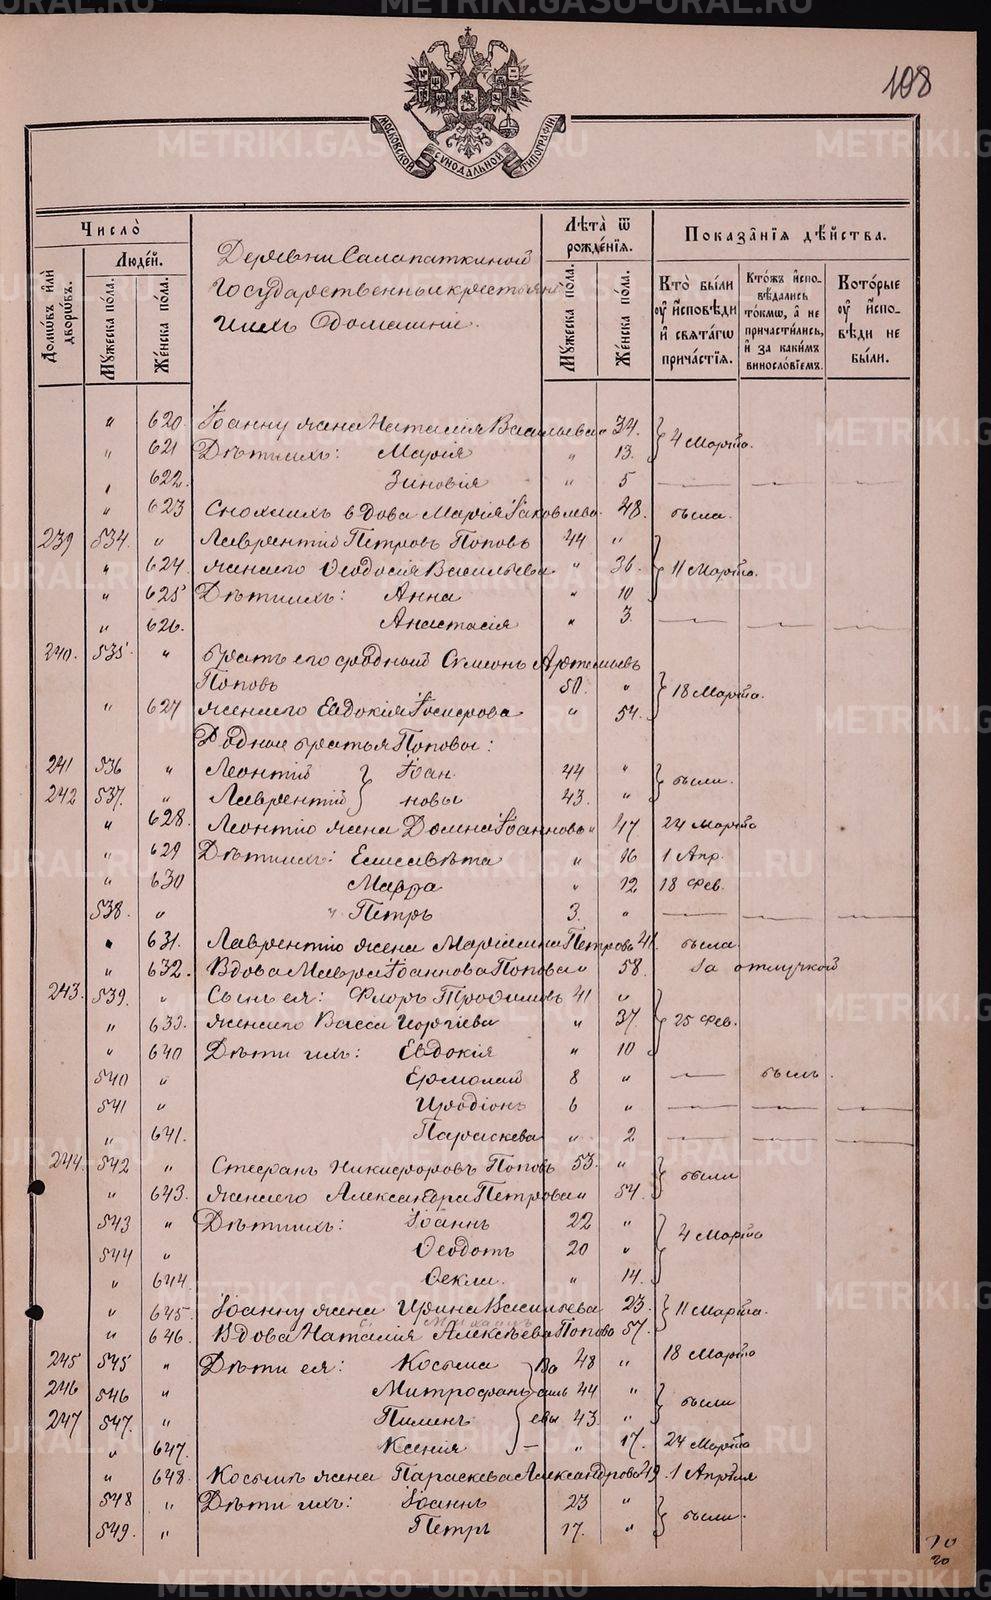 108
МОСКОВСКОЙ СѴНОДАЛЬНОЙ ТИПОГРАФІИ
Число̀
Людéй.
Домѡ́въ и҆лѝ дворѡ́въ.
Мꙋ́жеска по́ла.
Же́нска по́ла.
Деревни Салопаткиной
Государственныи крестьяне
и ихъ домашніи.
Лѣ̑та ѿ рождéнїѧ.
Мꙋ́жеска по́ла.
Же́нска по́ла.
Показа̑нїѧ дѣ́йства.
Кто̀ бы́ли ᲂу҆ и҆́сповѣди и҆ свѧта́гѡ прича́стїѧ.
Кто́жъ и҆спо- вѣ́дались то́кмѡ, а҆ не причасти́лись, и҆ за каки́мъ винослові́емъ.
Кото́рые ᲂу҆ и҆спо- вѣди не бы́ли.
" 620. Іоанну жена Наталія Васильева " 34. 4 Марта.
" 621 Дѣти ихъ: Марія " 13.
" 622. Зиновія " 5 — — —
" 623 Сноха ихъ вдова Марія Іаковлева 48. была.
239 534. " Лаврентій Петровъ Поповъ 44 "
" 624. жена его Ѳеодосія Васильева " 36. 11 Марта.
" 625 Дѣти ихъ: Анна " 10
" 626. Анастасія " 3. — — —
240. 535 " братъ его сродный Симеонъ Артемьевъ
Поповъ 50. " 18 Марта.
" 627 жена его Евдокія 54.
Родные братья Поповы:
241 536 " Леонтій } Іоан 44 " были.
242 537. " Лаврентій } новы 43. "
" 628. Леонтію жена Домна Іоаннова " 47 24 Марта
" 629 Дѣти ихъ: Елисавѣта " 16 1 Апр.
" 630 Мавра " 12 18 Фев.
538. " " Петръ 3. " — — —
" 631. Лаврентію жена Маріамна Петрова 41. была
" 632. Вдова Мавра Іоаннова Попова " 58. За отлучкой
243. 539. " Сынъ ея: Флоръ Трофимовъ 41 "
" 633. жена его Васса Георгіева " 37 25 Фев.
" 640 Дѣти ихъ: Евдокія " 10
540 " Ермолай 8 " — былъ.
541 " Иродіонъ 6 " — — —
" 641. Параскева " 2 — — —
244. 542 " Стефанъ Никифоровъ Поповъ 53. " были
" 643. жена его Александра Петрова " 54.
543 " Дѣти ихъ: Іоаннъ 22 " 4 Марта
544 " Ѳеодотъ 20 "
" 644. Ѳекла. " 14.
" 645. Іоанну жена Ирина Васильева 23. 11 Марта.
" 646. Вдова Наталія Алексѣева Попова 57. 18 Марта
245 545 " Дѣти ея: Косьма } Ва 48 "
246 546 " Митрофанъ силь 44 " были
247 547. " Пименъ евы 43. "
" 647. Ксенія — " 17. 24 Марта
" 648. Косьмѣ жена Параскева Александрова 49. 1 Апрѣля
548 " Дѣти ихъ: Іоаннъ 23 " были.
549. " Петръ 17. "
METRIKI.GASO-URAL.RU